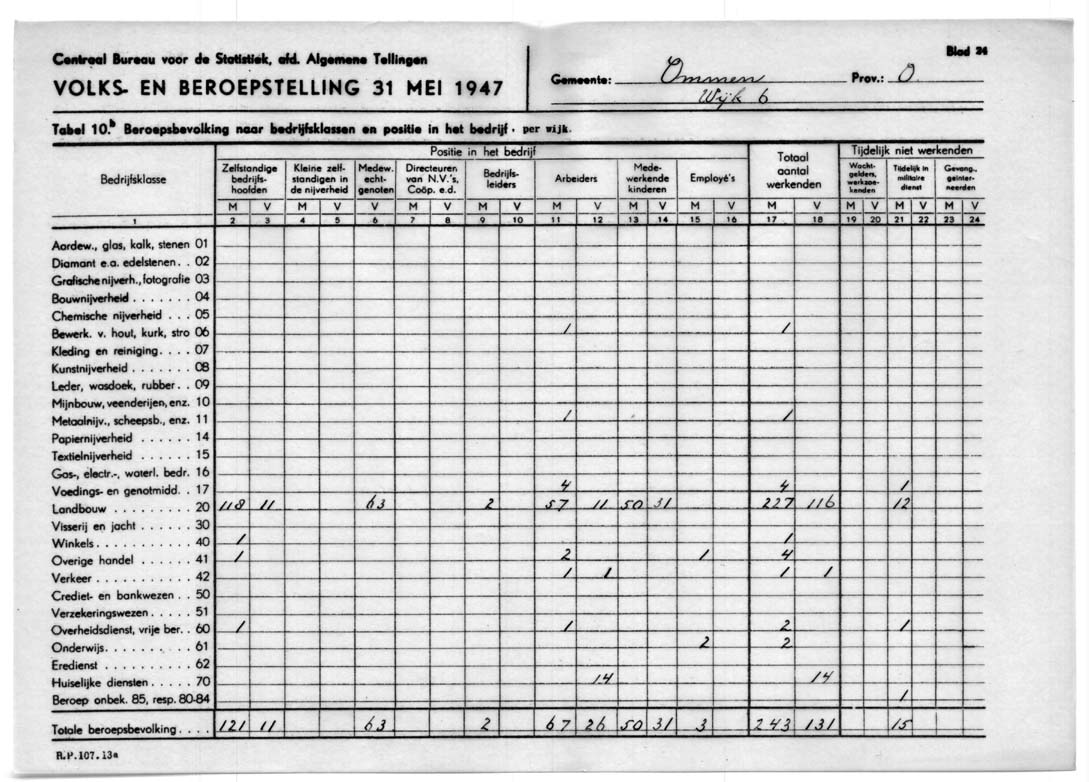 Centraal Bureau voor de Statistiek, afd. Algemene Tellingen
VOLKS- EN BEROEPSTELLING 31 MEI 1947
Blad 24
Gemeente: Ommen Prov.: O
Wijk 6
Tabel 10.b Beroepsbevolking naar bedrijfsklassen en positie in het bedrijf. per wijk.
Bedrijfsklasse
Positie in het bedrijf
Zelfstandige bedrijfs- hoofden
Kleine zelf- standigen in de nijverheid
Medew. echt- genoten
Directeuren van N.V.'s, Coöp. e.d.
Bedrijfs- leiders
Arbeiders
Mede- werkende kinderen
Employé's
Totaal aantal werkenden
Tijdelijk niet werkenden
Wacht- gelders, werkzoe- kenden
Tijdelijk in militaire dienst
Gevang., geinter- neerden
M V M V V M V M V M V M V M V M V M V M V M V
1 2 3 4 5 6 7 8 9 10 11 12 13 14 15 16 17 18 19 20 21 22 23 24
Aardew., glas, kalk, stenen 01
Diamant e.a. edelstenen. . 02
Grafische nijverh., fotografie 03
Bouwnijverheid . . . . . . . 04
Chemische nijverheid . . . 05
Bewerk. v. hout, kurk, stro 06 1 1
Kleding en reiniging. . . . 07
Kunstnijverheid . . . . . . . 08
Leder, wasdoek, rubber. . 09
Mijnbouw, veenderijen, enz. 10
Metaalnijv., scheepsb., enz. 11 1 1
Papiernijverheid . . . . . . 14
Textielnijverheid . . . . . . 15
Gas-, electr.-, waterl. bedr. 16
Voedings- en genotmidd. . 17 4 4 1
Landbouw . . . . . . . . . 20 118 11 63 2 57 11 50 31 227 116 12
Visserij en jacht . . . . . . 30
Winkels. . . . . . . . . . . 40 1 1
Overige handel . . . . . . 41 1 2 1 4
Verkeer . . . . . . . . . . . 42 1 1 1 1
Crediet- en bankwezen . . 50
Verzekeringswezen . . . . . 51
Overheidsdienst, vrije ber. . 60 1 1 2 1
Onderwijs. . . . . . . . . . 61 2 2
Eredienst . . . . . . . . . . 62
Huiselijke diensten . . . . . 70 14 14
Beroep onbek. 85, resp. 80-84 1
Totale beroepsbevolking. . . . 121 11 63 2 67 26 50 31 3 243 131 15
R.P.107.13a